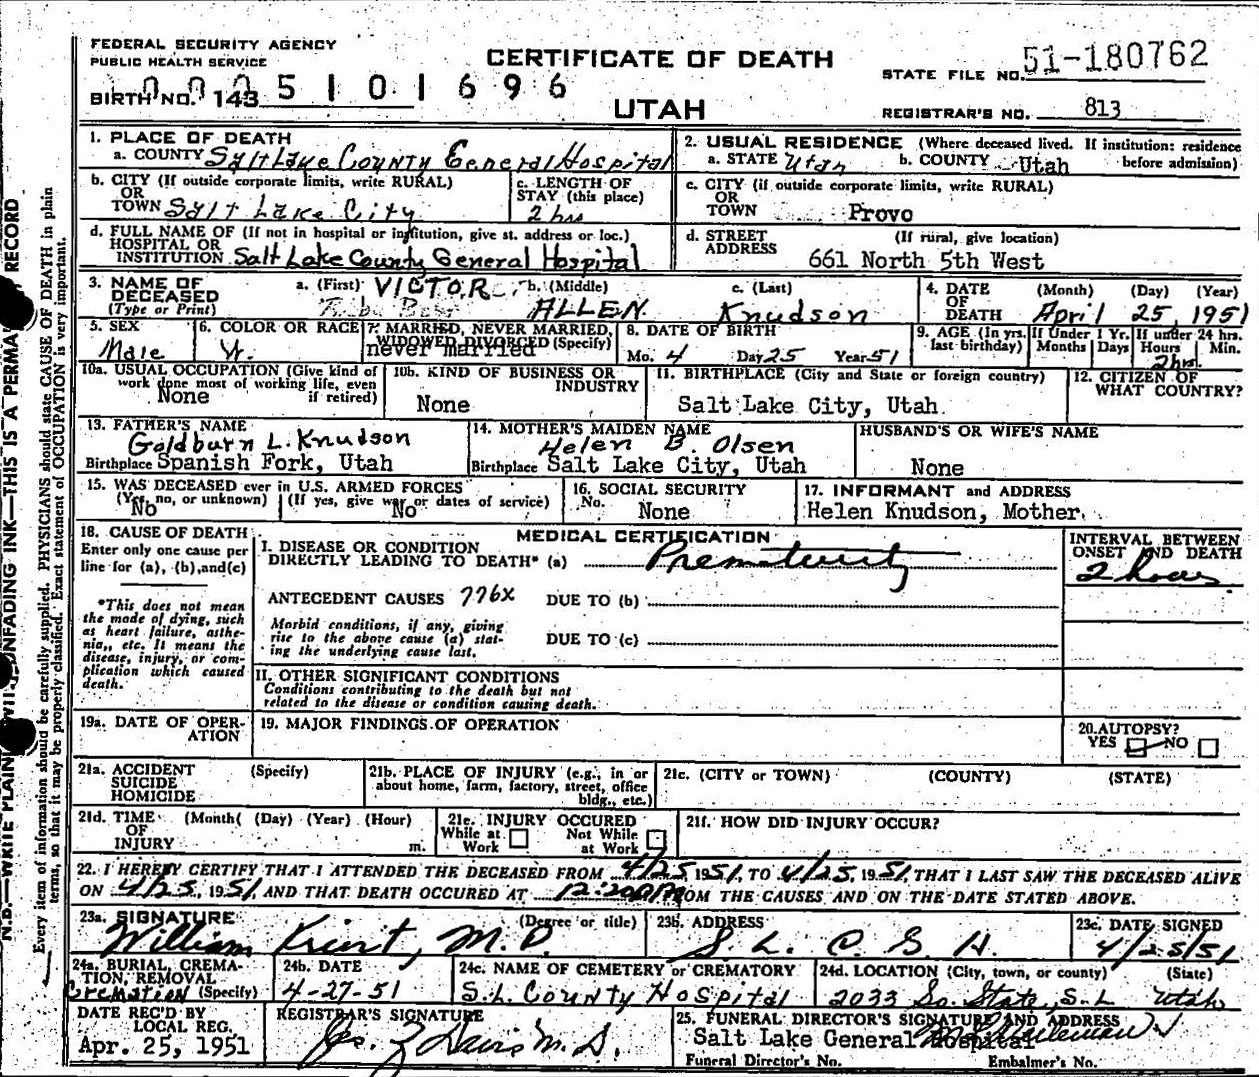 FEDERAL SECURITY AGENCY
PUBLIC HEALTH SERVICE
BIRTH NO. 143 5 1 0 1 6 9 6
CERTIFICATE OF DEATH
UTAH
STATE FILE NO. 51-180762
REGISTRAR'S NO. 813
1. PLACE OF DEATH
a. COUNTY Salt Lake County General Hospital
2. USUAL RESIDENCE (Where deceased lived. If institution: residence before admission)
a. STATE Utah b. COUNTY Utah
b. CITY (If outside corporate limits, write RURAL)
OR
TOWN Salt Lake City
c. LENGTH OF
STAY (this place)
2 hrs
c. CITY (if outside corporate limits, write RURAL)
OR
TOWN Provo
d. FULL NAME OF (If not in hospital or institution, give st. address or loc.)
HOSPITAL OR
INSTITUTION Salt Lake County General Hospital
d. STREET
ADDRESS
(If rural, give location)
661 North 5th West
3. NAME OF
DECEASED
(Type or Print)
a. (First) VICTOR b. (Middle) ALLEN c. (Last) Knudson
4. DATE
OF
DEATH
(Month) (Day) (Year)
April 25, 1951
5. SEX
Male
6. COLOR OR RACE
W.
7. MARRIED, NEVER MARRIED,
WIDOWED DIVORCED (Specify)
never married
8. DATE OF BIRTH
Mo. 4 Day 25 Year 51
9. AGE (In yrs.
last birthday)
If Under 1 Yr.
Months Days
If under 24 hrs.
Hours Min.
2 hrs.
10a. USUAL OCCUPATION (Give kind of
work done most of working life, even
if retired)
None
10b. KIND OF BUSINESS OR
INDUSTRY
None
11. BIRTHPLACE (City and State or foreign country)
Salt Lake City, Utah
12. CITIZEN OF
WHAT COUNTRY?
13. FATHER'S NAME
Goldburn L. Knudson
Birthplace Spanish Fork, Utah
14. MOTHER'S MAIDEN NAME
Helen B. Olsen
Birthplace Salt Lake City, Utah
HUSBAND'S OR WIFE'S NAME
None
15. WAS DECEASED ever in U.S. ARMED FORCES
(Yes, no, or unknown) (If yes, give war or dates of service)
No No
16. SOCIAL SECURITY
No. None
17. INFORMANT and ADDRESS
Helen Knudson, Mother
18. CAUSE OF DEATH
Enter only one cause per
line for (a), (b), and (c)
*This does not mean
the mode of dying, such
as heart failure, asthe-
nia, etc. It means the
disease, injury, or com-
plication which caused
death.
MEDICAL CERTIFICATION
I. DISEASE OR CONDITION
DIRECTLY LEADING TO DEATH* (a) Prematurity
ANTECEDENT CAUSES 776X DUE TO (b)
Morbid conditions, if any, giving
rise to the above cause (a) stat-
ing the underlying cause last.
DUE TO (c)
II. OTHER SIGNIFICANT CONDITIONS
Conditions contributing to the death but not
related to the disease or condition causing death.
INTERVAL BETWEEN
ONSET AND DEATH
2 hours
19a. DATE OF OPER-
ATION
19. MAJOR FINDINGS OF OPERATION
20. AUTOPSY?
YES NO
21a. ACCIDENT (Specify)
SUICIDE
HOMICIDE
21b. PLACE OF INJURY (e.g., in or
about home, farm, factory, street, office
bldg., etc.)
21c. (CITY or TOWN) (COUNTY) (STATE)
21d. TIME (Month) (Day) (Year) (Hour)
OF
INJURY m.
21e. INJURY OCCURED
While at Work Not While at Work
21f. HOW DID INJURY OCCUR?
22. I HEREBY CERTIFY THAT I ATTENDED THE DECEASED FROM 4/25, 1951, TO 4/25, 1951, THAT I LAST SAW THE DECEASED ALIVE
ON 4/25, 1951, AND THAT DEATH OCCURED AT 12:20 PM FROM THE CAUSES AND ON THE DATE STATED ABOVE.
23a. SIGNATURE (Degree or title)
William M.D.
23b. ADDRESS
S. L. C. G. H.
23c. DATE SIGNED
4/25/51
24a. BURIAL, CREMA-
TION, REMOVAL
Cremation (Specify)
24b. DATE
4-27-51
24c. NAME OF CEMETERY or CREMATORY
S.L. County Hospital
24d. LOCATION (City, town, or county) (State)
2033 So. State, S.L Utah
DATE REC'D BY
LOCAL REG.
Apr. 25, 1951
REGISTRAR'S SIGNATURE
Davis M.D.
25. FUNERAL DIRECTOR'S SIGNATURE AND ADDRESS
Salt Lake General Hospital
Funeral Director's No. Embalmer's No.
N.B.—WRITE PLAINLY WITH UNFADING INK—THIS IS A PERMA RECORD
Every item of information should be carefully supplied. PHYSICIANS should state CAUSE OF DEATH in plain
terms, so that it may be properly classified. Exact statement of OCCUPATION is very important.